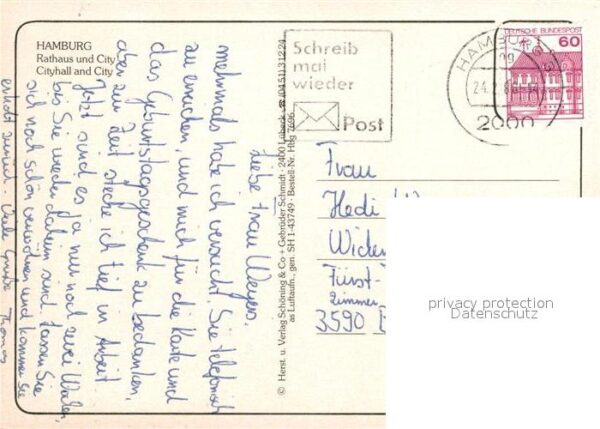 HAMBURG
Rathaus und City
Cityhall and City
Schreib
mal
wieder
Post
HAMBURG
24.2.
2000
DEUTSCHE BUNDESPOST
60
© Herst. u. Verlag Schöning & Co + Gebrüder Schmidt · 2400 Lübeck · ☎(0451) 31224
as Luftaufn., gen. SH 1-43749 · Bestell-Nr. Hbg 7696
Liebe Frau Weyers,
mehrmals habe ich versucht Sie telefonisch
zu erreichen, und mich für die Karte und
das Geburtstagsgeschenk zu bedanken,
aber zur Zeit stecke ich tief in Arbeit
Jetzt sind es ja nur noch zwei Wochen,
bis Sie wieder daheim sind. Lassen Sie
sich noch schön verwöhnen und kommen Sie
erholt zurück. Viele Grüße Thomas
Frau
Hedi
Fürst-
Zimmer
3590
privacy protection
Datenschutz